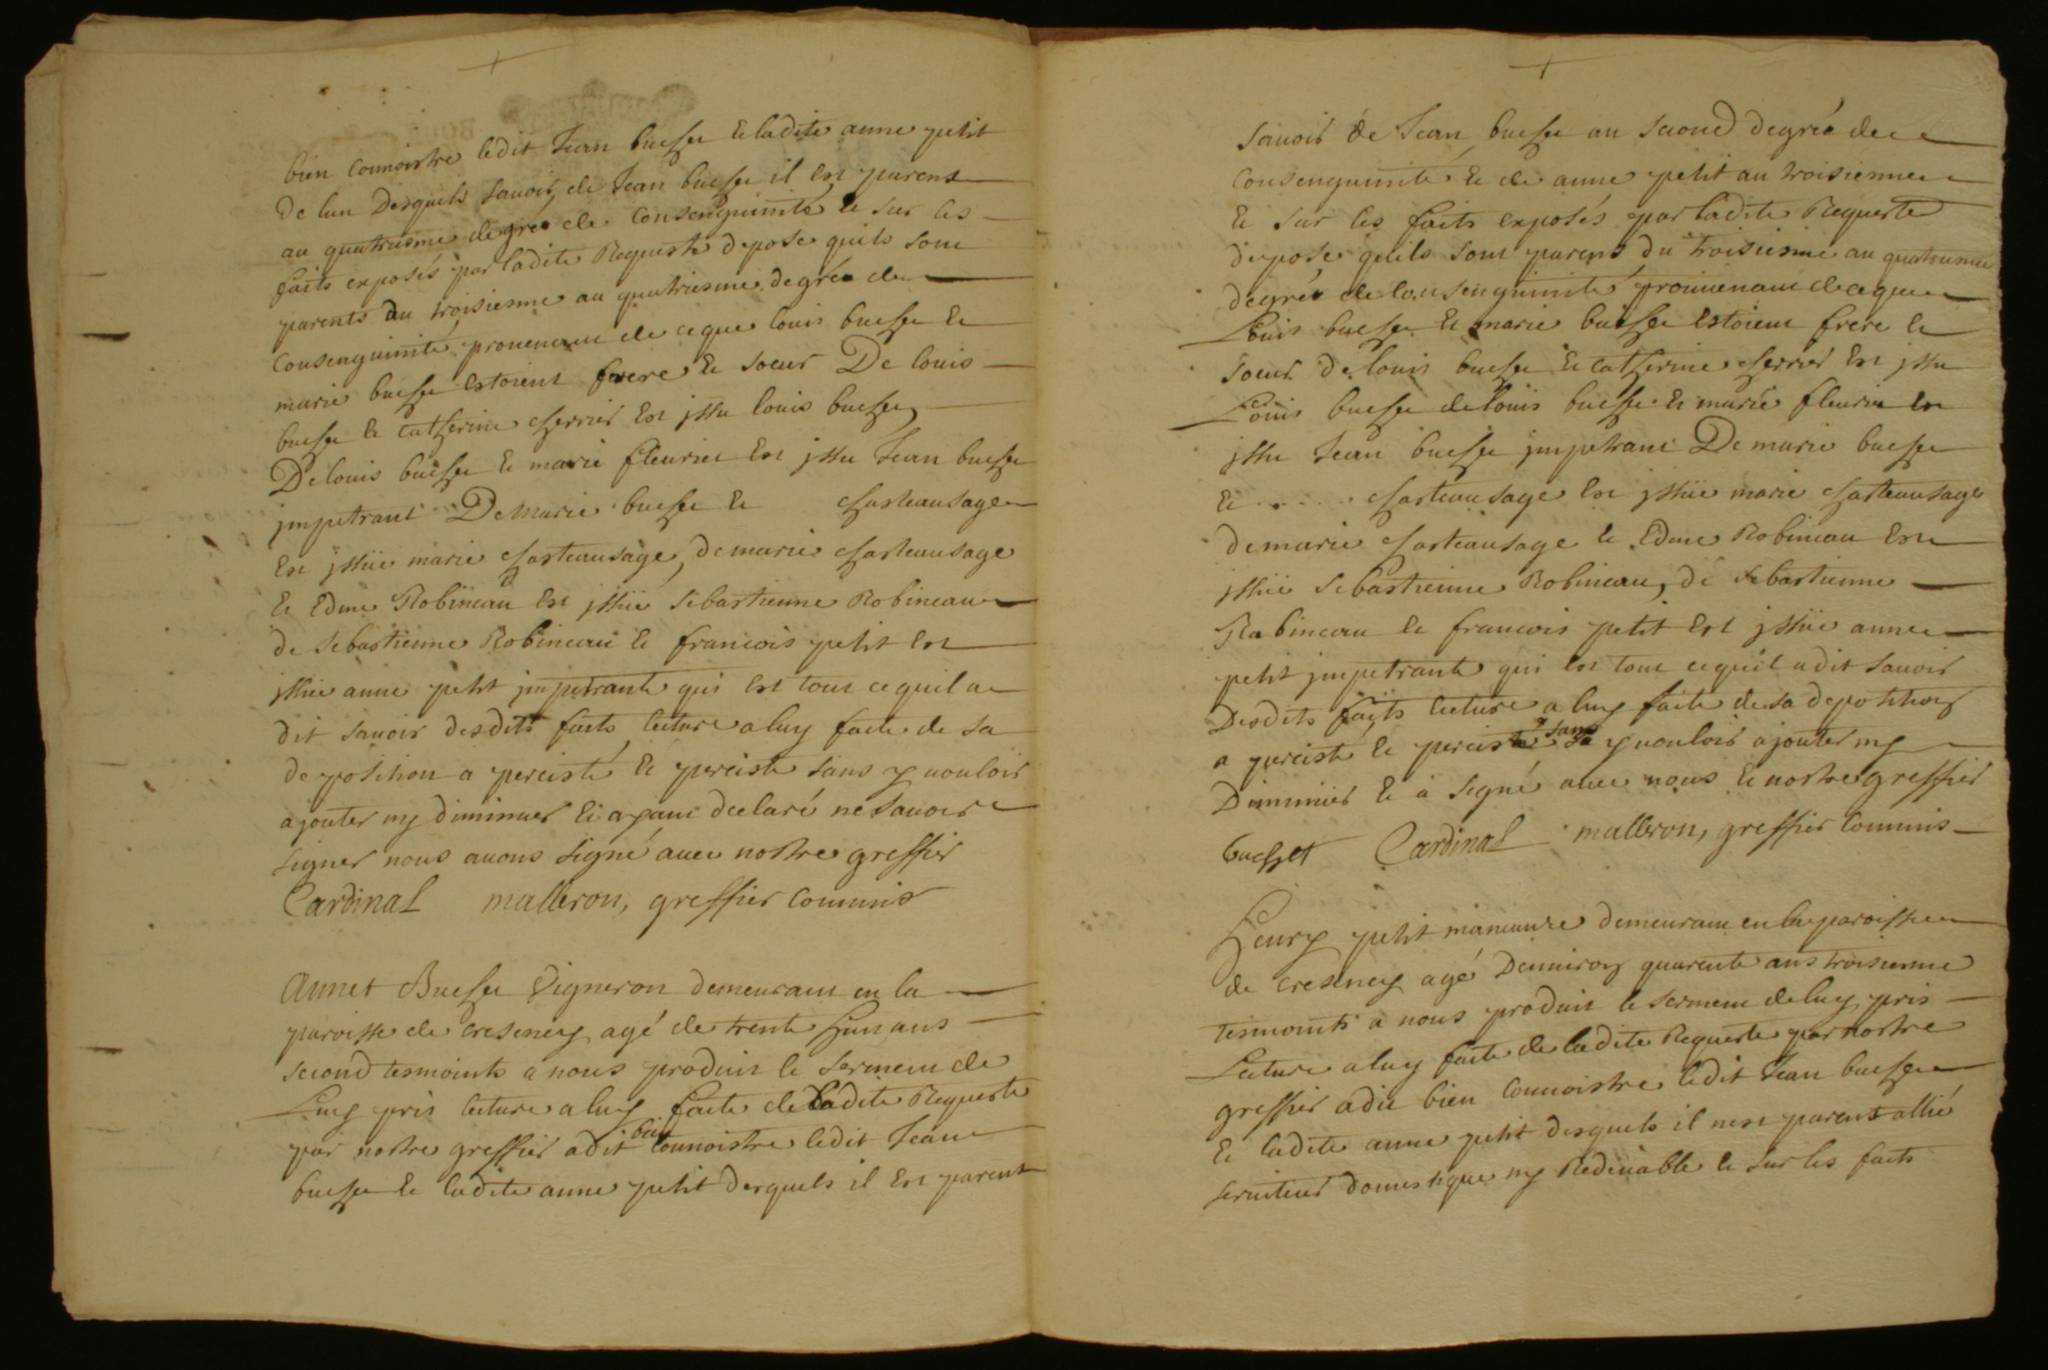 bien connoistre ledit Jean buesse et ladite anne petit
de lun desquels savoir de Jean buesse il est parent
au quatriesme degrés de consenguinité et sur les
faits exposés par ladite Requeste depose quils sont
parents du troisiesme au quatriesme degréé de
consenguinité provenant de ce que louis buesse et
marie buesse estoient frere et soeur De louis
buesse et catherine cherrier est jssu louis buesse,
De louis buesse et marie fleurier est jssu Jean buesse
jmpetrant De marie buesse et chasteausage
est jssüe marie chasteausage, de marie chasteausage
et Edme Robineau est jssüe sebastienne Robineau
de sebastienne Robineau et francois petit est
jssüe anne petit jmpetrante qui est tout ce quil a
dit savoir desdits faits lecture a luy faite de sa
deposition a perciste et perciste sans y vouloir
ajouter ny diminuer et ayant declaré ne savoir
signer nous avons signé avec nostre greffier
Cardinal malleron, greffier commis
Annet Buesse Vigneron demeurant en la
paroisse de cresency agé de trente huu ans
second tesmoints a nous produit le serment de
Luy pris lecture a luy faite de ladite Requeste
par nostre greffier a dit bien connoistre ledit Jean
buesse et ladite anne petit desquels il est parent
savoir de Jean buesse au second degréé de
consenguinité et de anne petit au troisieme
et sur les faits exposés par ladite Requeste
depose quils sont parens du troisiesme au quatriesme
degréé de consenguinité provienant de ce que
Louis buesse et marie buesse estoient frere et
soeur de louis buesse et catherine cherrier est jssu
Louis buesse de louis buesse et marie fleurier est
jssu Jean buesse jmpetrant De marie buesse
et ..... chasteausage est jssüe marie chasteausage
de marie chasteausage et Edme Robineau est
jssüe sebastienne Robineau, de sebastienne
Robineau et francois petit est jssüe anne
petit jmpetrante qui est tout ce quil a dit savoir
Desdits faits lecture a luy faite de sa deposition
a perciste et perciste sans y vouloir ajouter ny
Diminuer et a signé avec nous et nostre greffier
buesset Cardinal malleron, greffier commis
henry petit maneuvre demeurant en la paroisse
de cresency agé Denviron quarente ans troisieme
tesmoints a nous produit le serment de luy pris
Lecture a luy faite de ladite Requeste par nostre
greffier a dit bien connoistre ledit Jean buesse
et ladite anne petit desquels il nest parent allié
serviteur domestique ny Redevable et sur les faits